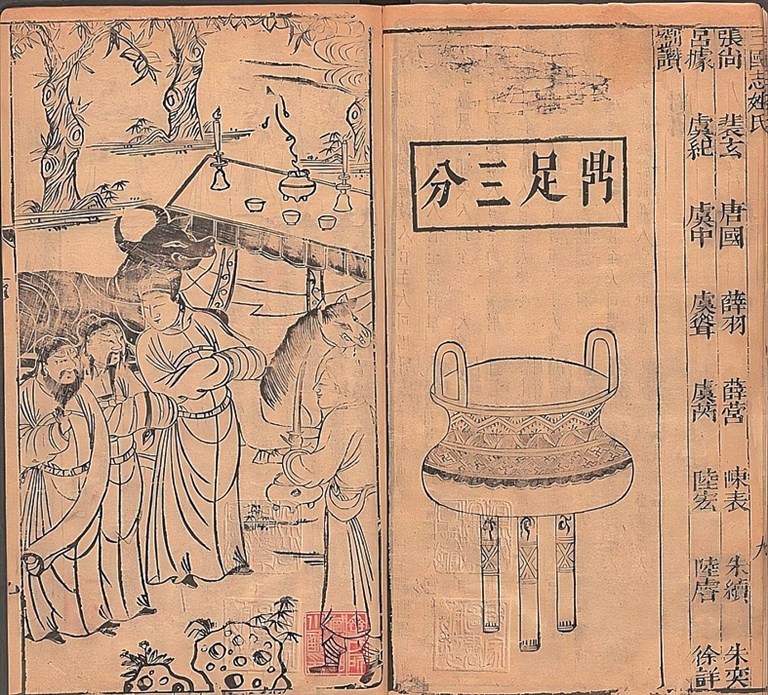 三國志姓氏 九
張尚 裴玄 唐國 薛羽 薛營 陳表 朱續 朱
呂據 虞紀 虞中 虞聳 虞 陸宏 陸 徐詳
劉讚
鼎足三分